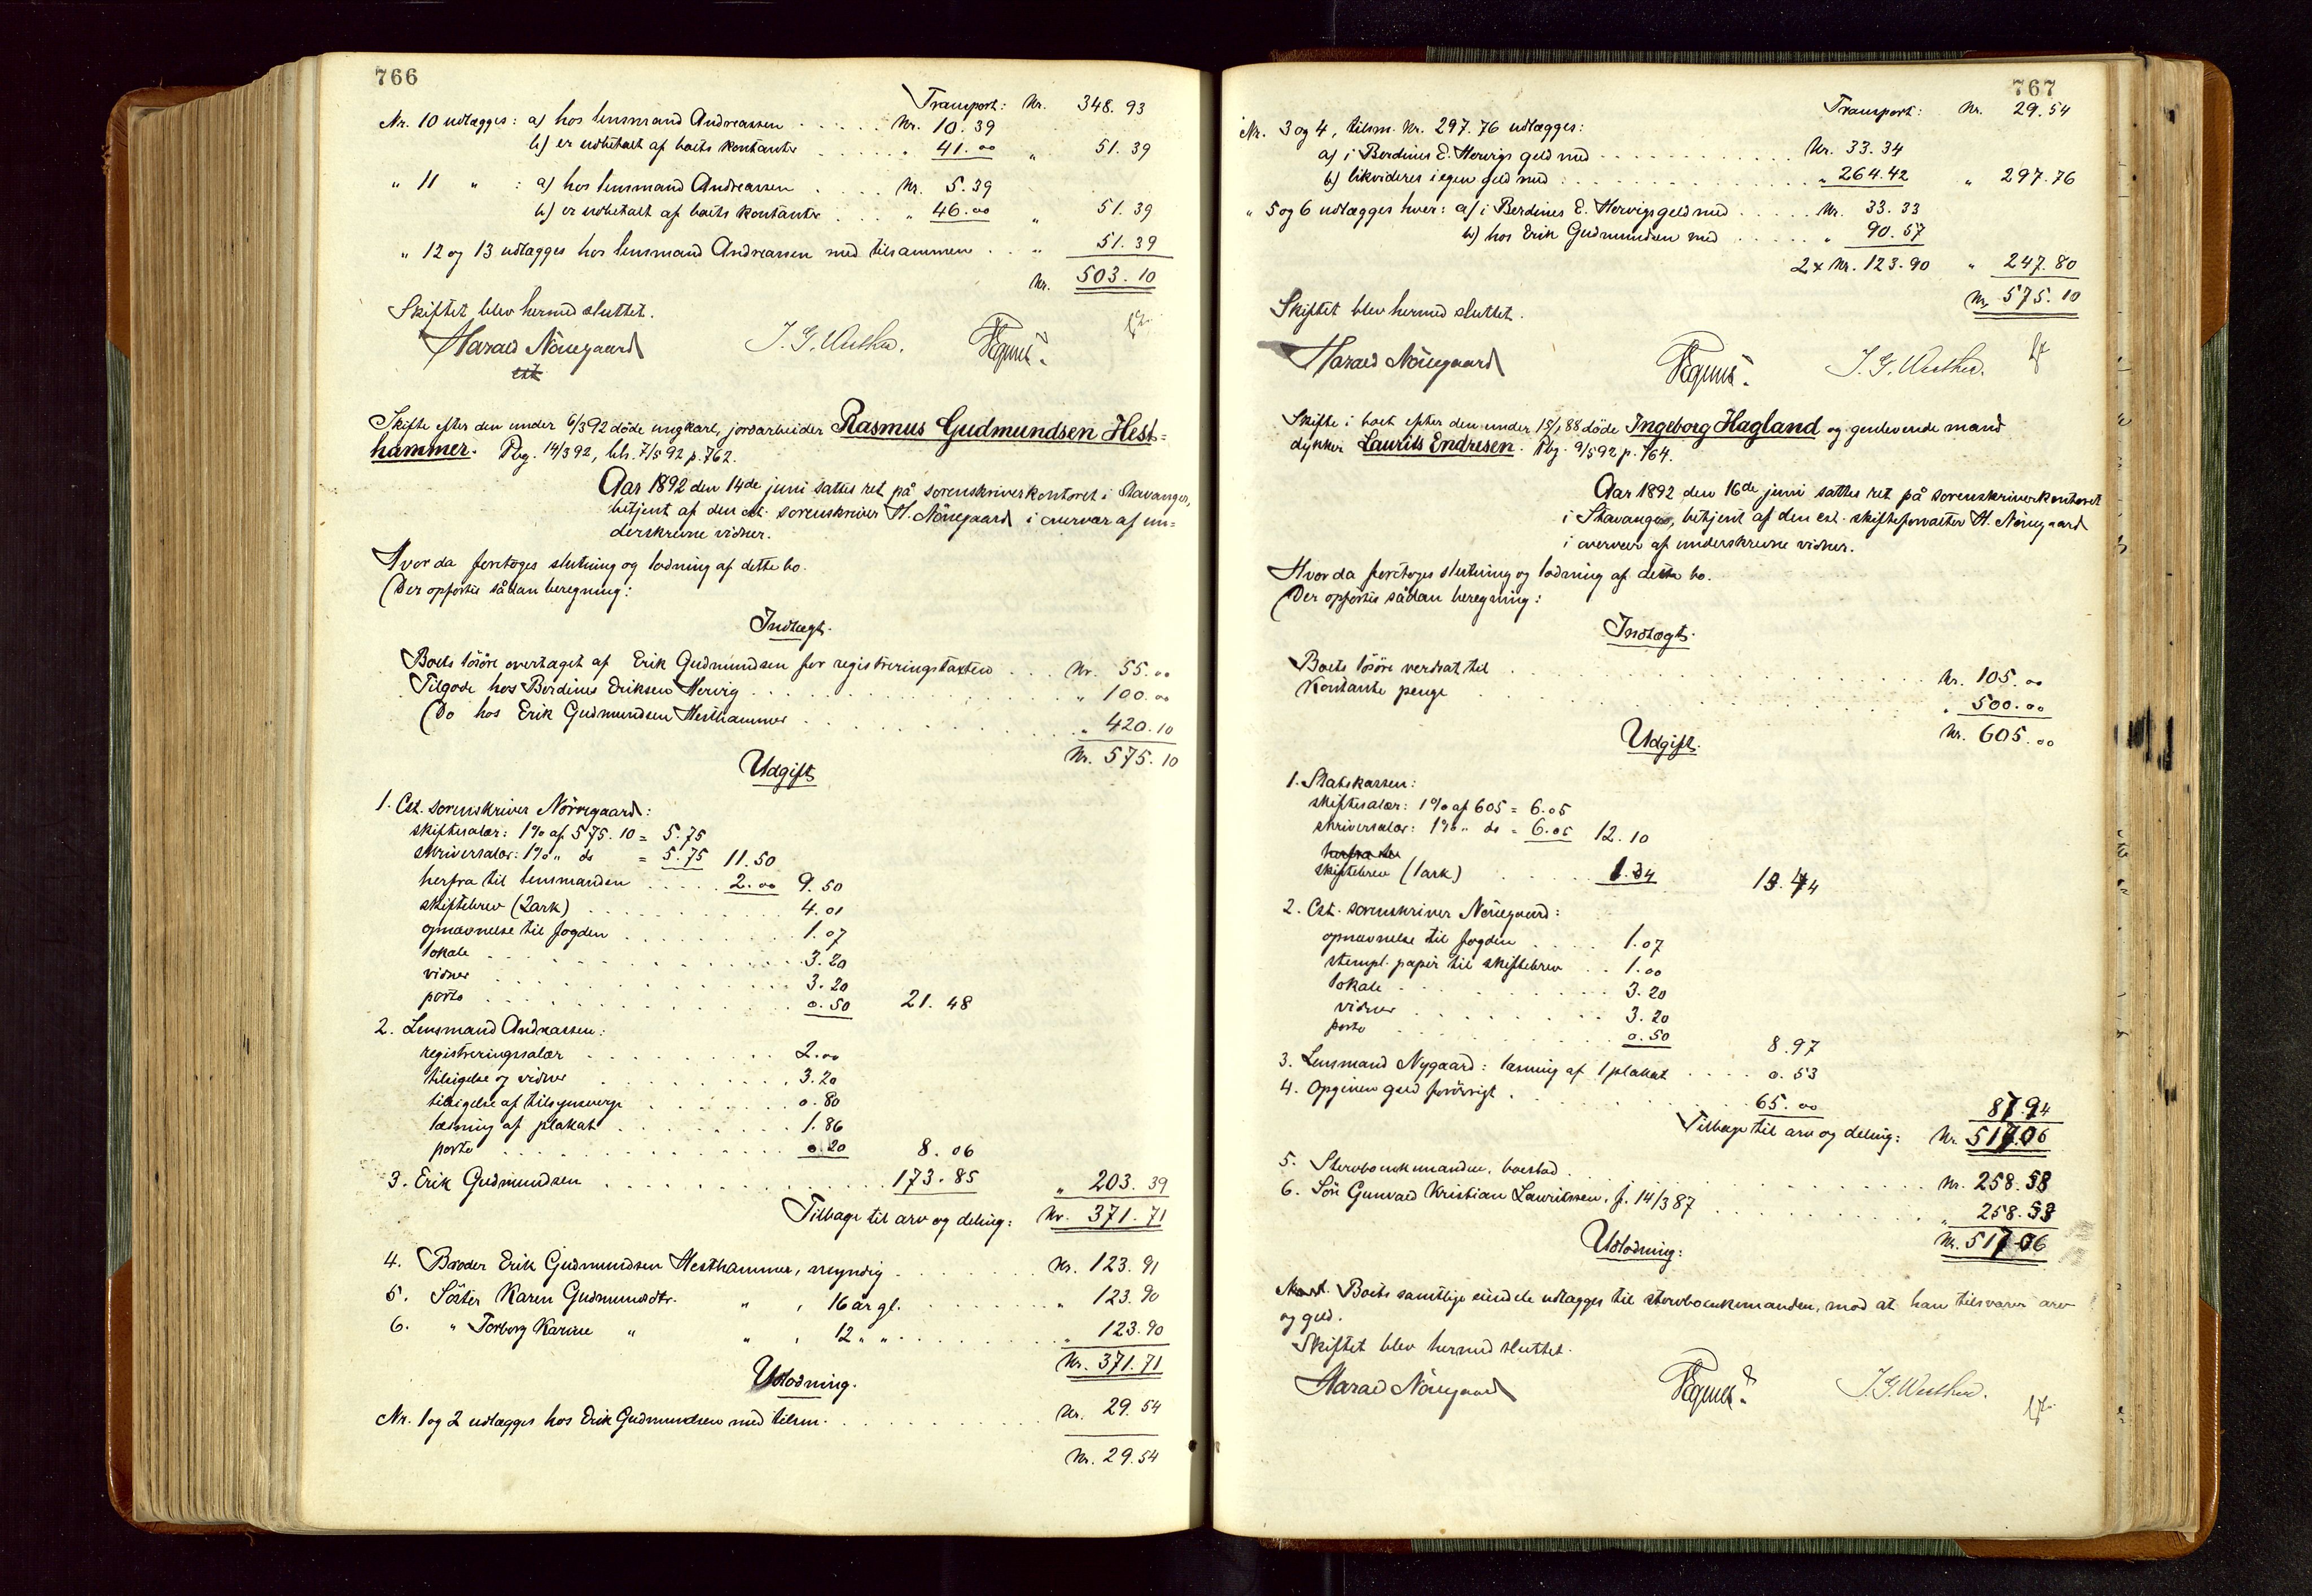 766
Transport: Kr. 348.93
Nr. 10 udlægges: a) hos lensmand Andreassen ..... Kr. 10.39
b) er udbetalt af boets kontanter ..... " 41.00 " 51.39
" 11 " : a) hos lensmand Andreassen .... Kr. 5.39
b) er udbetalt af boets kontanter ... " 46.00 " 51.39
" 12 og 13 udlægges hos lensmand Andreassen med tilsammen .. " 51.39
Kr. 503.10
Skiftet blev hermed sluttet.
Harald Nörregaard
cst
Skifte efter den under 6/3 92 döde ungkarl, jordarbeider Rasmus Gudmundsen Hest=
hammer. Reg. 14/3 92, beh. 7/5 92 p. 762.
Aar 1892 den 14de juni sattes ret på sorenskriverkontoret i Stavanger,
betjent af den cst. sorenskriver H. Nörregaard i overvær af un=
derskrevne vidner.
Hvor da foretoges slutning og lodning af dette bo.
Der opförtes sådan beregning:
Indtægt.
Boets lösöre overtaget af Erik Gudmundsen for registreringstaxten .. Kr. 55.00
Tilgode hos Berdines Eriksen Hervig ........ " 100.00
Do hos Erik Gudmundsen Hesthammer ........ " 420.10
Kr. 575.10
Udgift
1. Cst. sorenskriver Nörregaard:
skiftesalær: 1% af 575.10 = 5.75
skriversalær: 1% " do = 5.75 11.50
herfra til lensmanden .... 2.00 9.50
skiftebrev (2 ark) ........ 4.01
opnævnelse til fogden ...... 1.07
lokale .......... 3.20
vidner .......... 3.20
porto .......... 0.50 21.48
2. Lensmand Andreassen:
registreringssalær ....... 2.00
tilsigelse og vidner ...... 3.20
tilsigelse af tilsynsverge ..... 0.80
læsning af plakat ....... 1.86
porto .......... 0.20 8.06
3. Erik Gudmundsen .......... 173.85 " 203.39
Tilbage til arv og deling: Kr. 371.71
4. Broder Erik Gudmundsen Hesthammer, myndig ..... Kr. 123.91
5. Söster Karen Gudmundsdtr. " , 16 år gl. ..... " 123.90
6. " Torborg Karine " " , 12 " " ...... " 123.90
Kr. 371.71
Udlodning.
Nr. 1 og 2 udlægges hos Erik Gudmundsen med tilsm. ....... Kr. 29.54
Kr. 29.54
767
Transport: Kr. 29.54
Nr. 3 og 4, tilsm. Kr. 297.76 udlægges:
a) i Berdines E. Hervigs gjeld med .......... Kr. 33.34
b) likvideres i egen gjeld med : .......... " 264.42 " 297.76
" 5 og 6 udlægges hver: a) i Berdines E. Hervigs gjeld med ..... Kr. 33.33
b) hos Erik Gudmundsen med ..... " 90.57
2 x Kr. 123.90 " 247.80
Kr. 575.10
Skiftet blev hermed sluttet.
Harald Nörregaard
Skifte i boet efter den under 15/1 88 döde Ingeborg Hagland og gjenlevende mand
dykker Laurits Endresen. Reg. 9/5 92 p. 764.
Aar 1892 den 16de juni sattes ret på sorenskriverkontoret
i Stavanger, betjent af den cst. skifteforvalter H. Nörregaard
i overvær af underskrevne vidner.
Hvor da foretoges slutning og lodning af dette bo.
Der opförtes sådan beregning:
Indtægt.
Boets lösöre verdsat til ............ Kr. 105.00
Kontante penge ............ " 500.00
Kr. 605.00
Udgift.
1. Statskassen:
skiftesalær: 1% af 605 = 6.05
skriversalær: 1% " do = 6.05 12.10
skiftebrev (1 ark) ..... 1.34 13.44
2. Cst. sorenskriver Nörregaard:
opnævnelse til fogden .... 1.07
stempl. papir til skiftebrev .. 1.00
lokale ........ 3.20
vidner ........ 3.20
porto ........ 0.50 8.97
3. Lensmand Nygaard: læsning af 1 plakat .... 0.53
4. Opgiven gjeld forövrigt ....... 65.00 87.94
Tilbage til arv og deling: Kr. 517.06
5. Stervboenkemanden, boeslod ........ Kr. 258.53
6. Sön Gunvald Kristian Lauritssen, f. 14/3 87 ....... " 258.53
Kr. 517.06
Udlodning:
Boets samtlige eiendele udlægges til stervboenkemanden, mod at han tilsvarer arv
og gjeld.
Skiftet blev hermed sluttet.
Harald Nörregaard